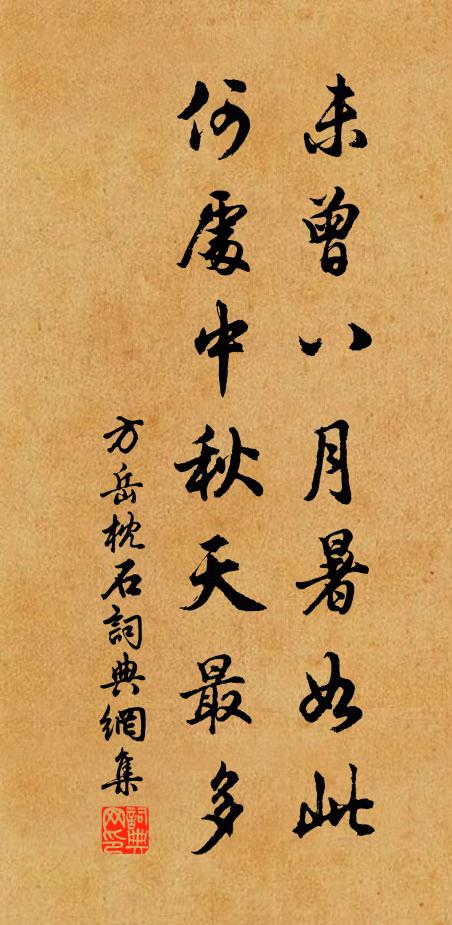 未曾八月暑如此
何處中秋天最多
方岳枕石詞典網集
詞典网印